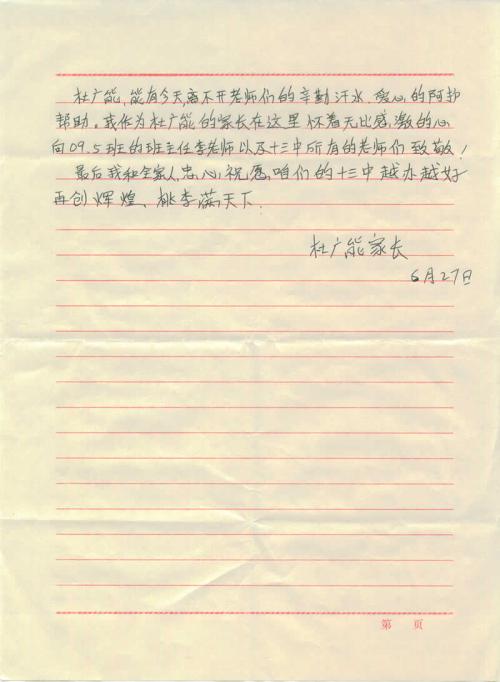 杜广能,能有今天,离不开老师们的辛勤汗水、爱心的阿护
帮助。我作为杜广能的家长在这里怀着无比感激的心
向09.5班的班主任李老师以及十三中所有的老师们致敬!
最后我和全家人忠心祝愿咱们的十三中越办越好
再创辉煌、桃李满天下.
杜广能家长
6月27日
第 页